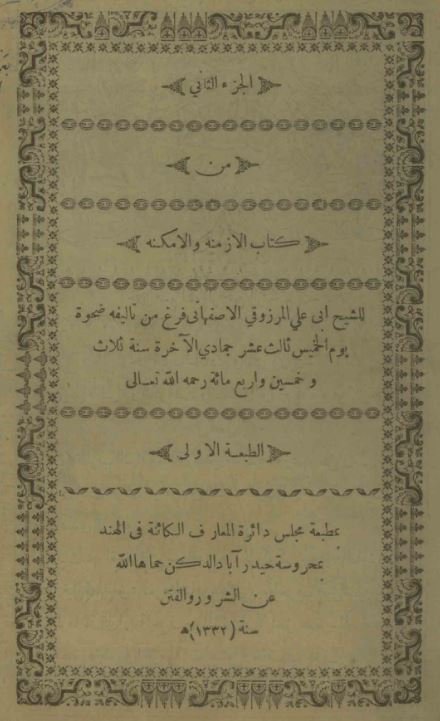 الجزء الثاني
من
كتاب الازمنه والامكنه
للشيخ ابى علي المرزوقي الاصفهانى فرغ من تاليفه ضحوة
يوم الخميس ثالث عشر جمادي الآخرة سنة ثلاث
و خمسين واربع مائة رحمه الله تعالى
الطبعة الاولى
بمطبعة مجلس دائرة المعارف الكائنة فى الهند
بمحروسة حيدرآباد الدكن حماها الله
عن الشرور والفتن
سنة (١٣٣٢)ه